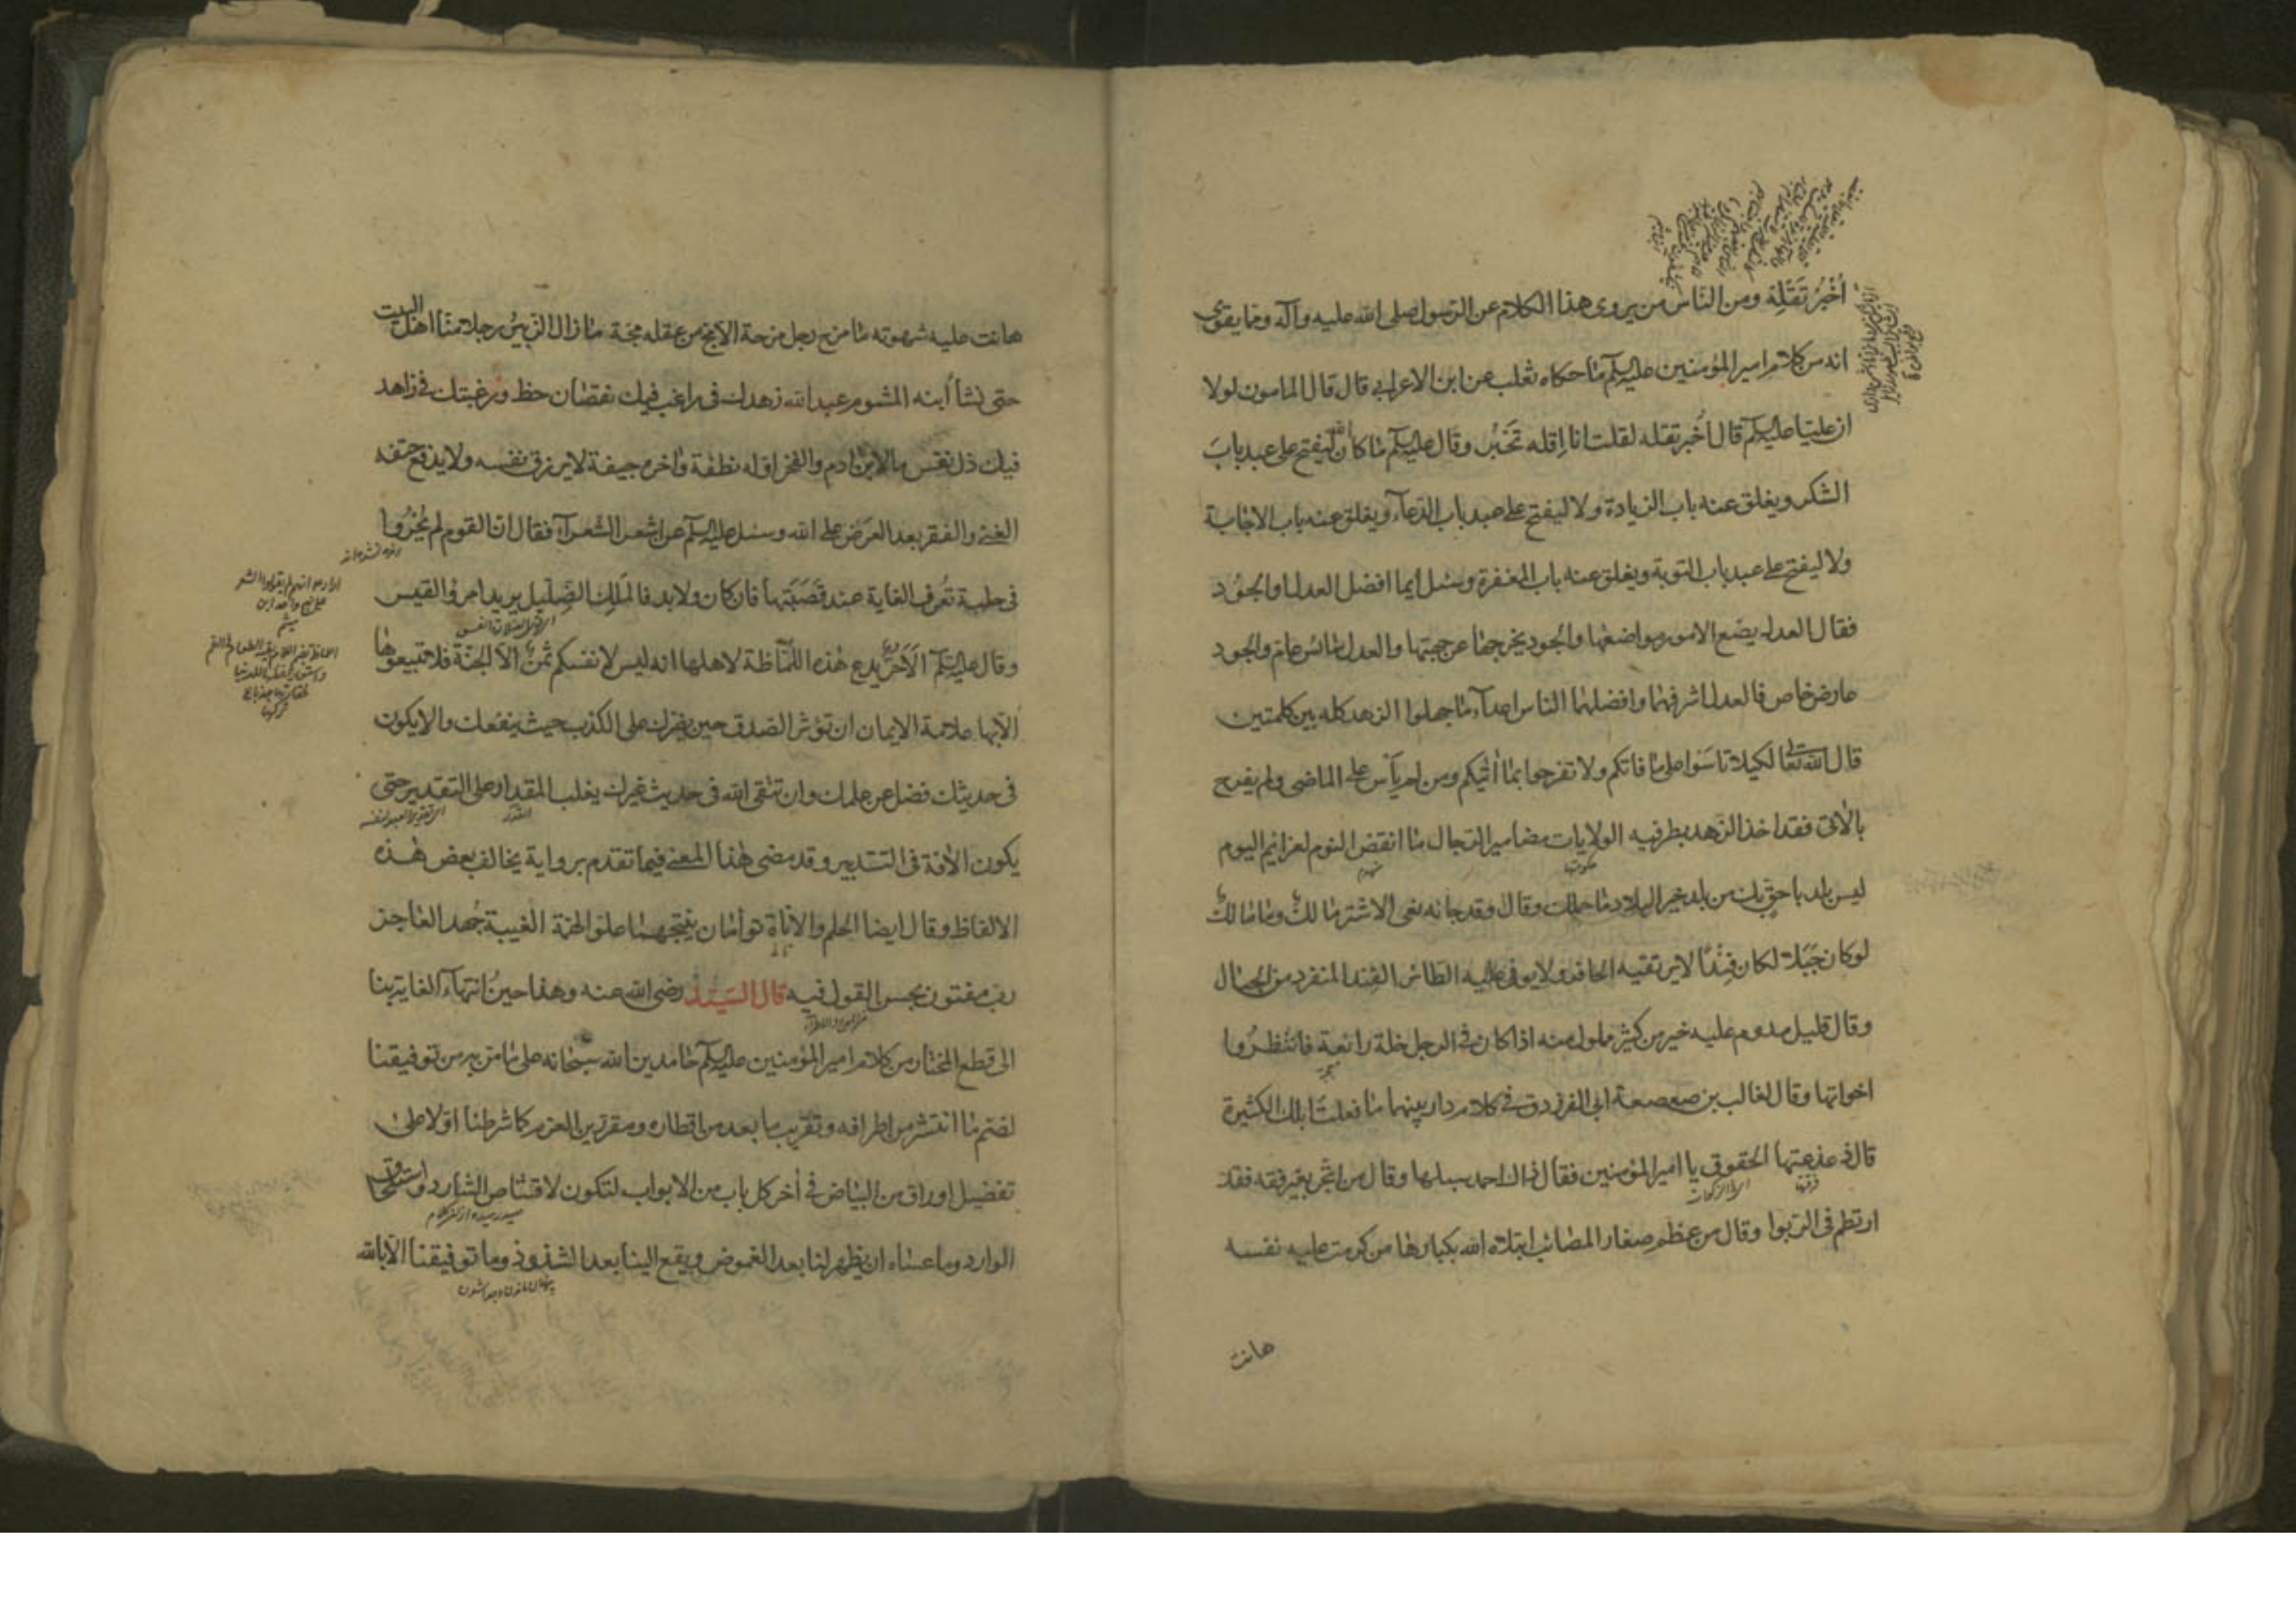 أُخْبُرْ تَقْلِهْ ومن الناس من يروى هذا الكلام عن الرسول صلى الله عليه وآله ومما يقوى
انه من كلام امير المؤمنين عليه السلم ما حكاه ثعلب عن ابن الاعرابي قال قال المامون لولا
ان عليا عليه السلم قال أخبر تقله لقلت انا إقله تَخْبُر وقال عليه السلم ما كان الله ليفتح على عبد بابَ
الشكر ويغلق عنه باب الزيادة ولا ليفتح على عبد باب الدعاء ويغلق عنه باب الاجابة
ولا ليفتح على عبد باب التوبة ويغلق عنه باب المغفرة وسئل ايما افضل العدل او الجود
فقال العدل يضع الامور مواضعها والجود يخرجها عن جهتها والعدل سائس عام والجود
عارض خاص فالعدل اشرفهما وافضلهما الناس اعداء ما جهلوا الزهد كله بين كلمتين
قال الله تعالى لكيلا تاسَوا على ما فاتكم ولا تفرحوا بما أتيكم ومن لم يأس على الماضى ولم يفرح
بالآتى فقد اخذ الزهد بطرفيه الولايات مضامير الرجال ما انقض النوم لعزائم اليوم
ليس بلد باحق بك من بلد خير البلاد ما حملك وقال وقد جاءه نعى الاشتر مالك وما مالك
لو كان جَبَلا لكان فِنْدًا لا يرتقيه الحافر ولا يوفى عليه الطائر الفند المنفرد من الجبال
وقال قليل مدوم عليه خير من كثير مملول منه اذا كان فى الرجل خلة رائعة فانتظروا
اخواتها وقال لغالب بن صعصعة ابى الفرزدق فى كلام دار بينهما ما فعلت ابلك الكثيرة
قال ذعذعتها الحقوق يا امير المؤمنين فقال ذاك احمد سبلها وقال من اتجر بغير فقه فقد
ارتطم فى الربوا وقال من عظم صغار المصائب ابتلاه الله بكبارها من كرمت عليه نفسه
هانت
هانت عليه شهوته ما مزح رجل مزحة الا مج من عقله مجة ما زال الزبير رجلا منا اهل البيت
حتى نشأ ابنه المشوم عبد الله زهدك فى راغب فيك نقصان حظ ورغبتك فى زاهد
فيك ذل نفس ما لابن ادم والفخر اوله نطفة واخره جيفة لا يرزق نفسه ولا يدفع حتفه
الغنى والفقر بعد العرض على الله وسئل عليه السلم عن اشعر الشعراء فقال ان القوم لم يجروا
فى حلبة تُعرف الغاية عند قَصَبَتِها فان كان ولا بد فالمَلِك الضِلّيل يريد امرؤ القيس
وقال عليه السلم ألا حُرٌّ يدع هذه اللُّمَاظة لاهلها انه ليس لانفسكم ثمن الا الجنة فلا تبيعوها
الا بها علامة الايمان ان تؤثر الصدق حين يضرك على الكذب حيث ينفعك والا يكون
فى حديثك فضل عن علمك وان تتقى الله فى حديث غيرك يغلب المقدار على التقدير حتى
يكون الآفة فى التدبير وقد مضى هذا المعنى فيما تقدم برواية يخالف بعض هذه
الالفاظ وقال ايضا الحلم والاناة توأمان ينتجهما علو الهمة الغيبة جُهد العاجز
رب مفتون بحسن القول فيه قال السيد رضى الله عنه وهذا حين انتهاء الغاية بنا
الى قطع المختار من كلام امير المؤمنين عليه السلم حامدين الله سبحانه على ما من به من توفيقنا
لضم ما انتشر من اطرافه وتقريب ما بعد من اقطاره ومقررين العزم كما شرطنا اولا على
تفضيل اوراق من البياض فى أخر كل باب من الابواب لتكون لاقتناص الشارد واستلحاق
الوارد وما عساه ان يظهر لنا بعد الغموض ويقع الينا بعد الشذوذ وما توفيقنا الا بالله